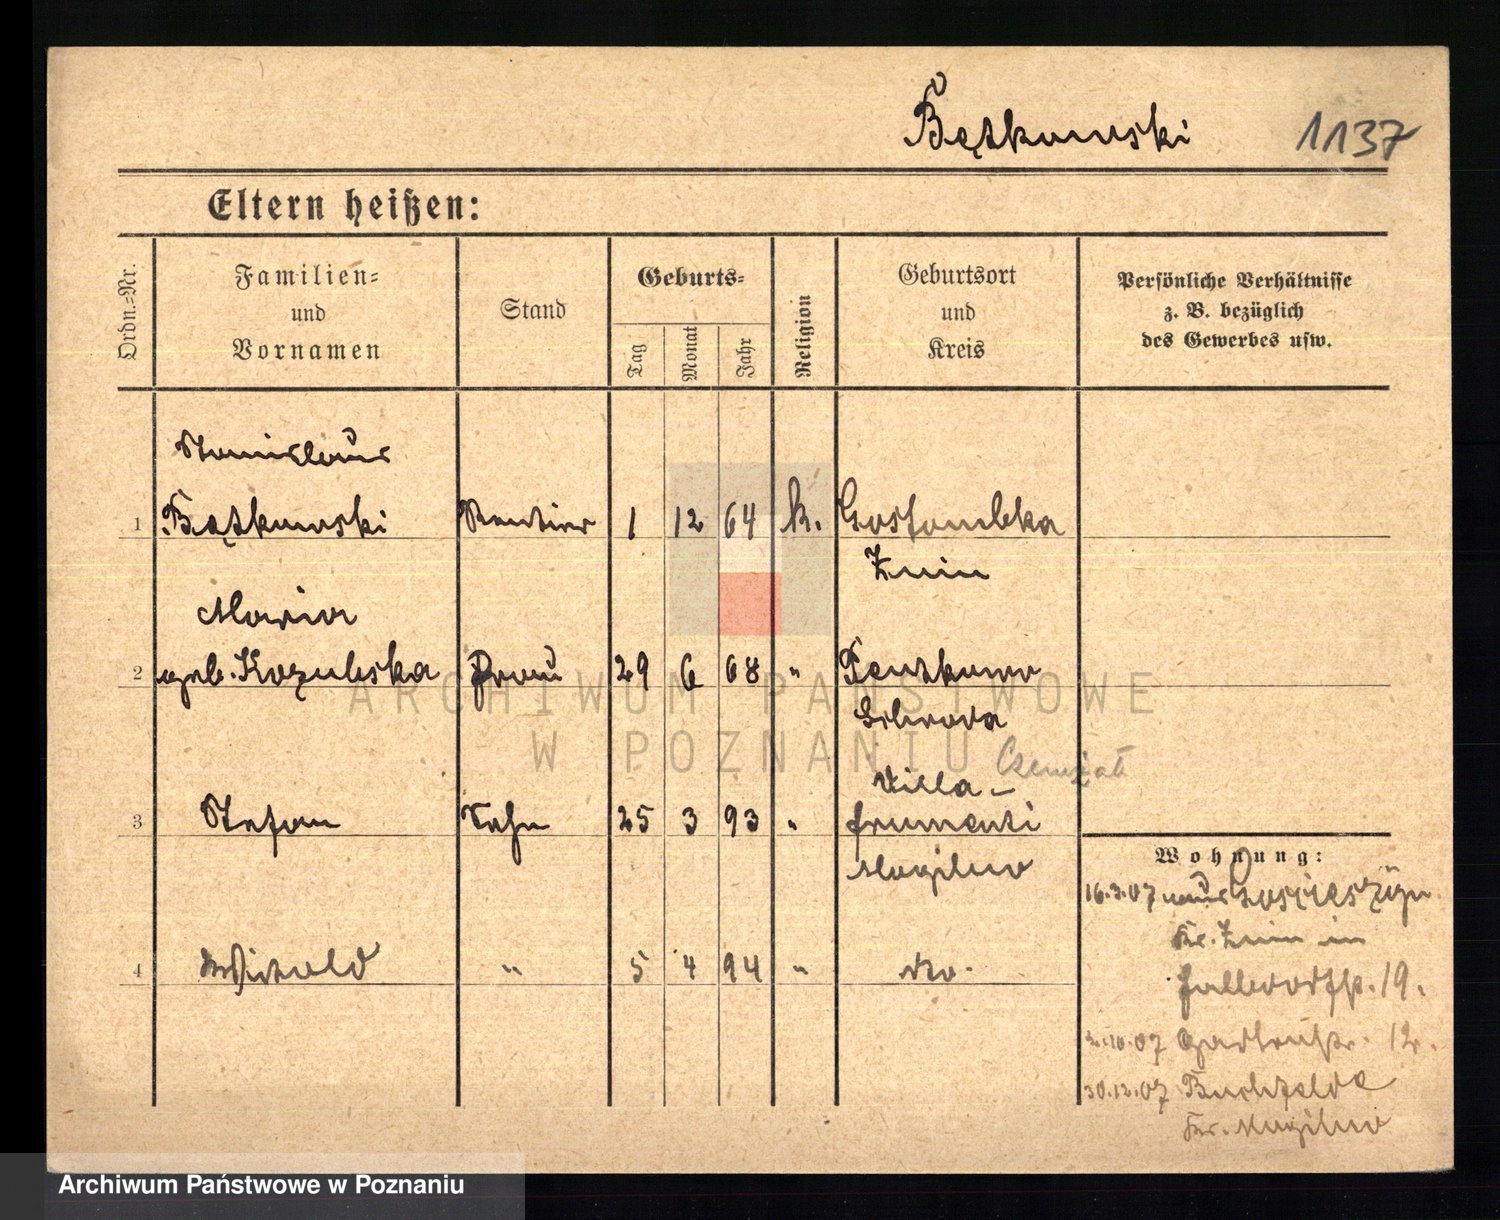 Bątkowski 1137
Eltern heißen:
Ordn.-Nr.
Familien-
und
Vornamen
Stand
Geburts-
Tag
Monat
Jahr
Religion
Geburtsort
und
Kreis
Persönliche Verhältnisse
z. B. bezüglich
des Gewerbes usw.
Stanislaus
1 Bątkowski Rentier 1 12 64 k. Gostombka
Znin
Maria
2 geb. Kozubska Frau 29 6 68 "
Schroda
Villa-
3 Stefan Sohn 25 3 93 " frumenti
Mogilno
4 Witold " 5 4 94 " do.
Wohnung:
16.3.07 aus
Kr. Znin in
19.
2.10.07 12.
30.12.07 Buchfelde
Kr. Mogilno
ARCHIWUM PAŃSTWOWE
W POZNANIU
Archiwum Państwowe w Poznaniu